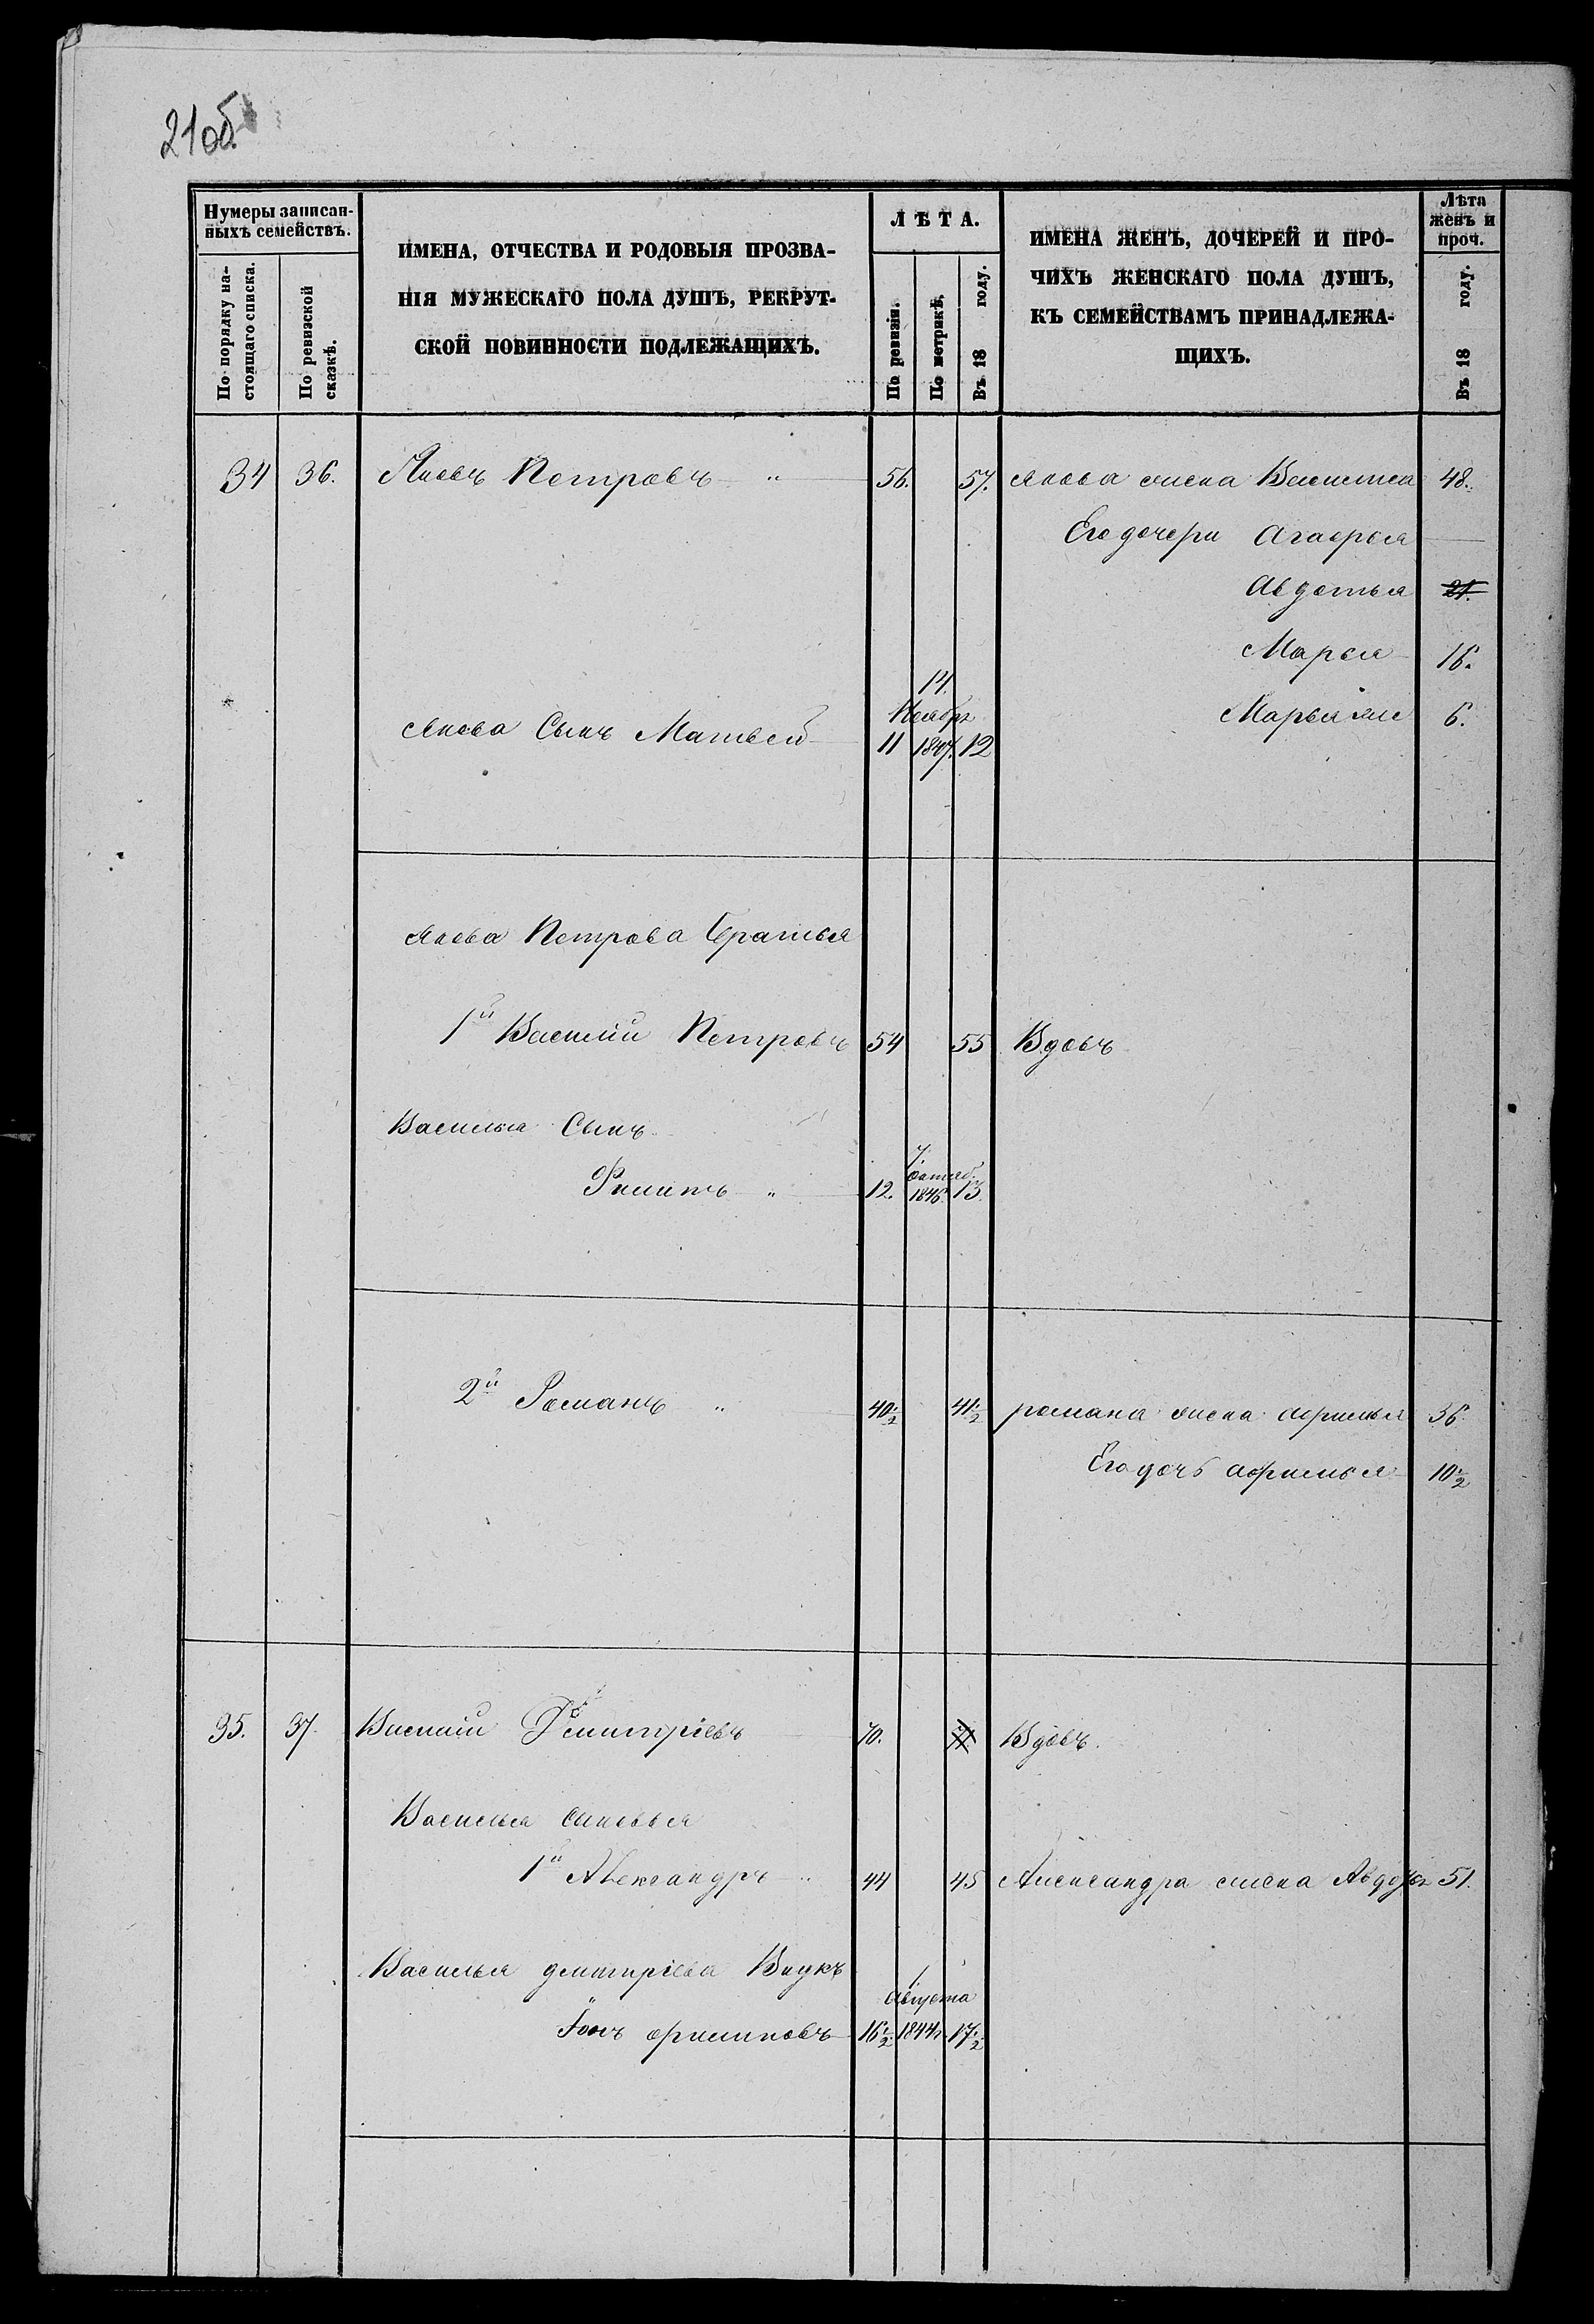 21об.
Нумеры записан-
ныхъ семействъ.
По порядку на-
стоящаго списка.
По ревизской
сказкѣ.
ИМЕНА, ОТЧЕСТВА И РОДОВЫЯ ПРОЗВА-
НІЯ МУЖЕСКАГО ПОЛА ДУШЪ, РЕКРУТ-
СКОЙ ПОВИННОСТИ ПОДЛЕЖАЩИХЪ.
ЛѢТА.
По ревизіи.
По метрикѣ.
Въ 18 году.
ИМЕНА ЖЕНЪ, ДОЧЕРЕЙ И ПРО-
ЧИХЪ ЖЕНСКАГО ПОЛА ДУШЪ,
КЪ СЕМЕЙСТВАМЪ ПРИНАДЛЕЖА-
ЩИХЪ.
Лѣта
женъ и
проч.
Въ 18 году.
34 36. Яковъ Петровъ " 56. 57. Якова жена 48.
Его дочери Агафья
Авдотья 21.
Марья 16.
14.
Ноября
Якова Сынъ Матвей 11 1847. 12
Марья же 6.
Якова Петрова Братья
1й Василій Петровъ 54 55 Вдовъ
Василья Сынъ
7.
октяб.
Филипъ " 12. 1846. 13.
2й Романъ " 40 1/2 41 1/2 романа жена афимья 36.
Его дочь афимья 10 1/2
35. 37. Василій Дмитріевъ 70. 71. Вдовъ.
Василья сыновья
1й Александръ " 44 45 Александра жена Авдотья 51.
Василья дмитріева Внукъ
1
августа
филиповъ 16 1/2 1844г. 17 1/2